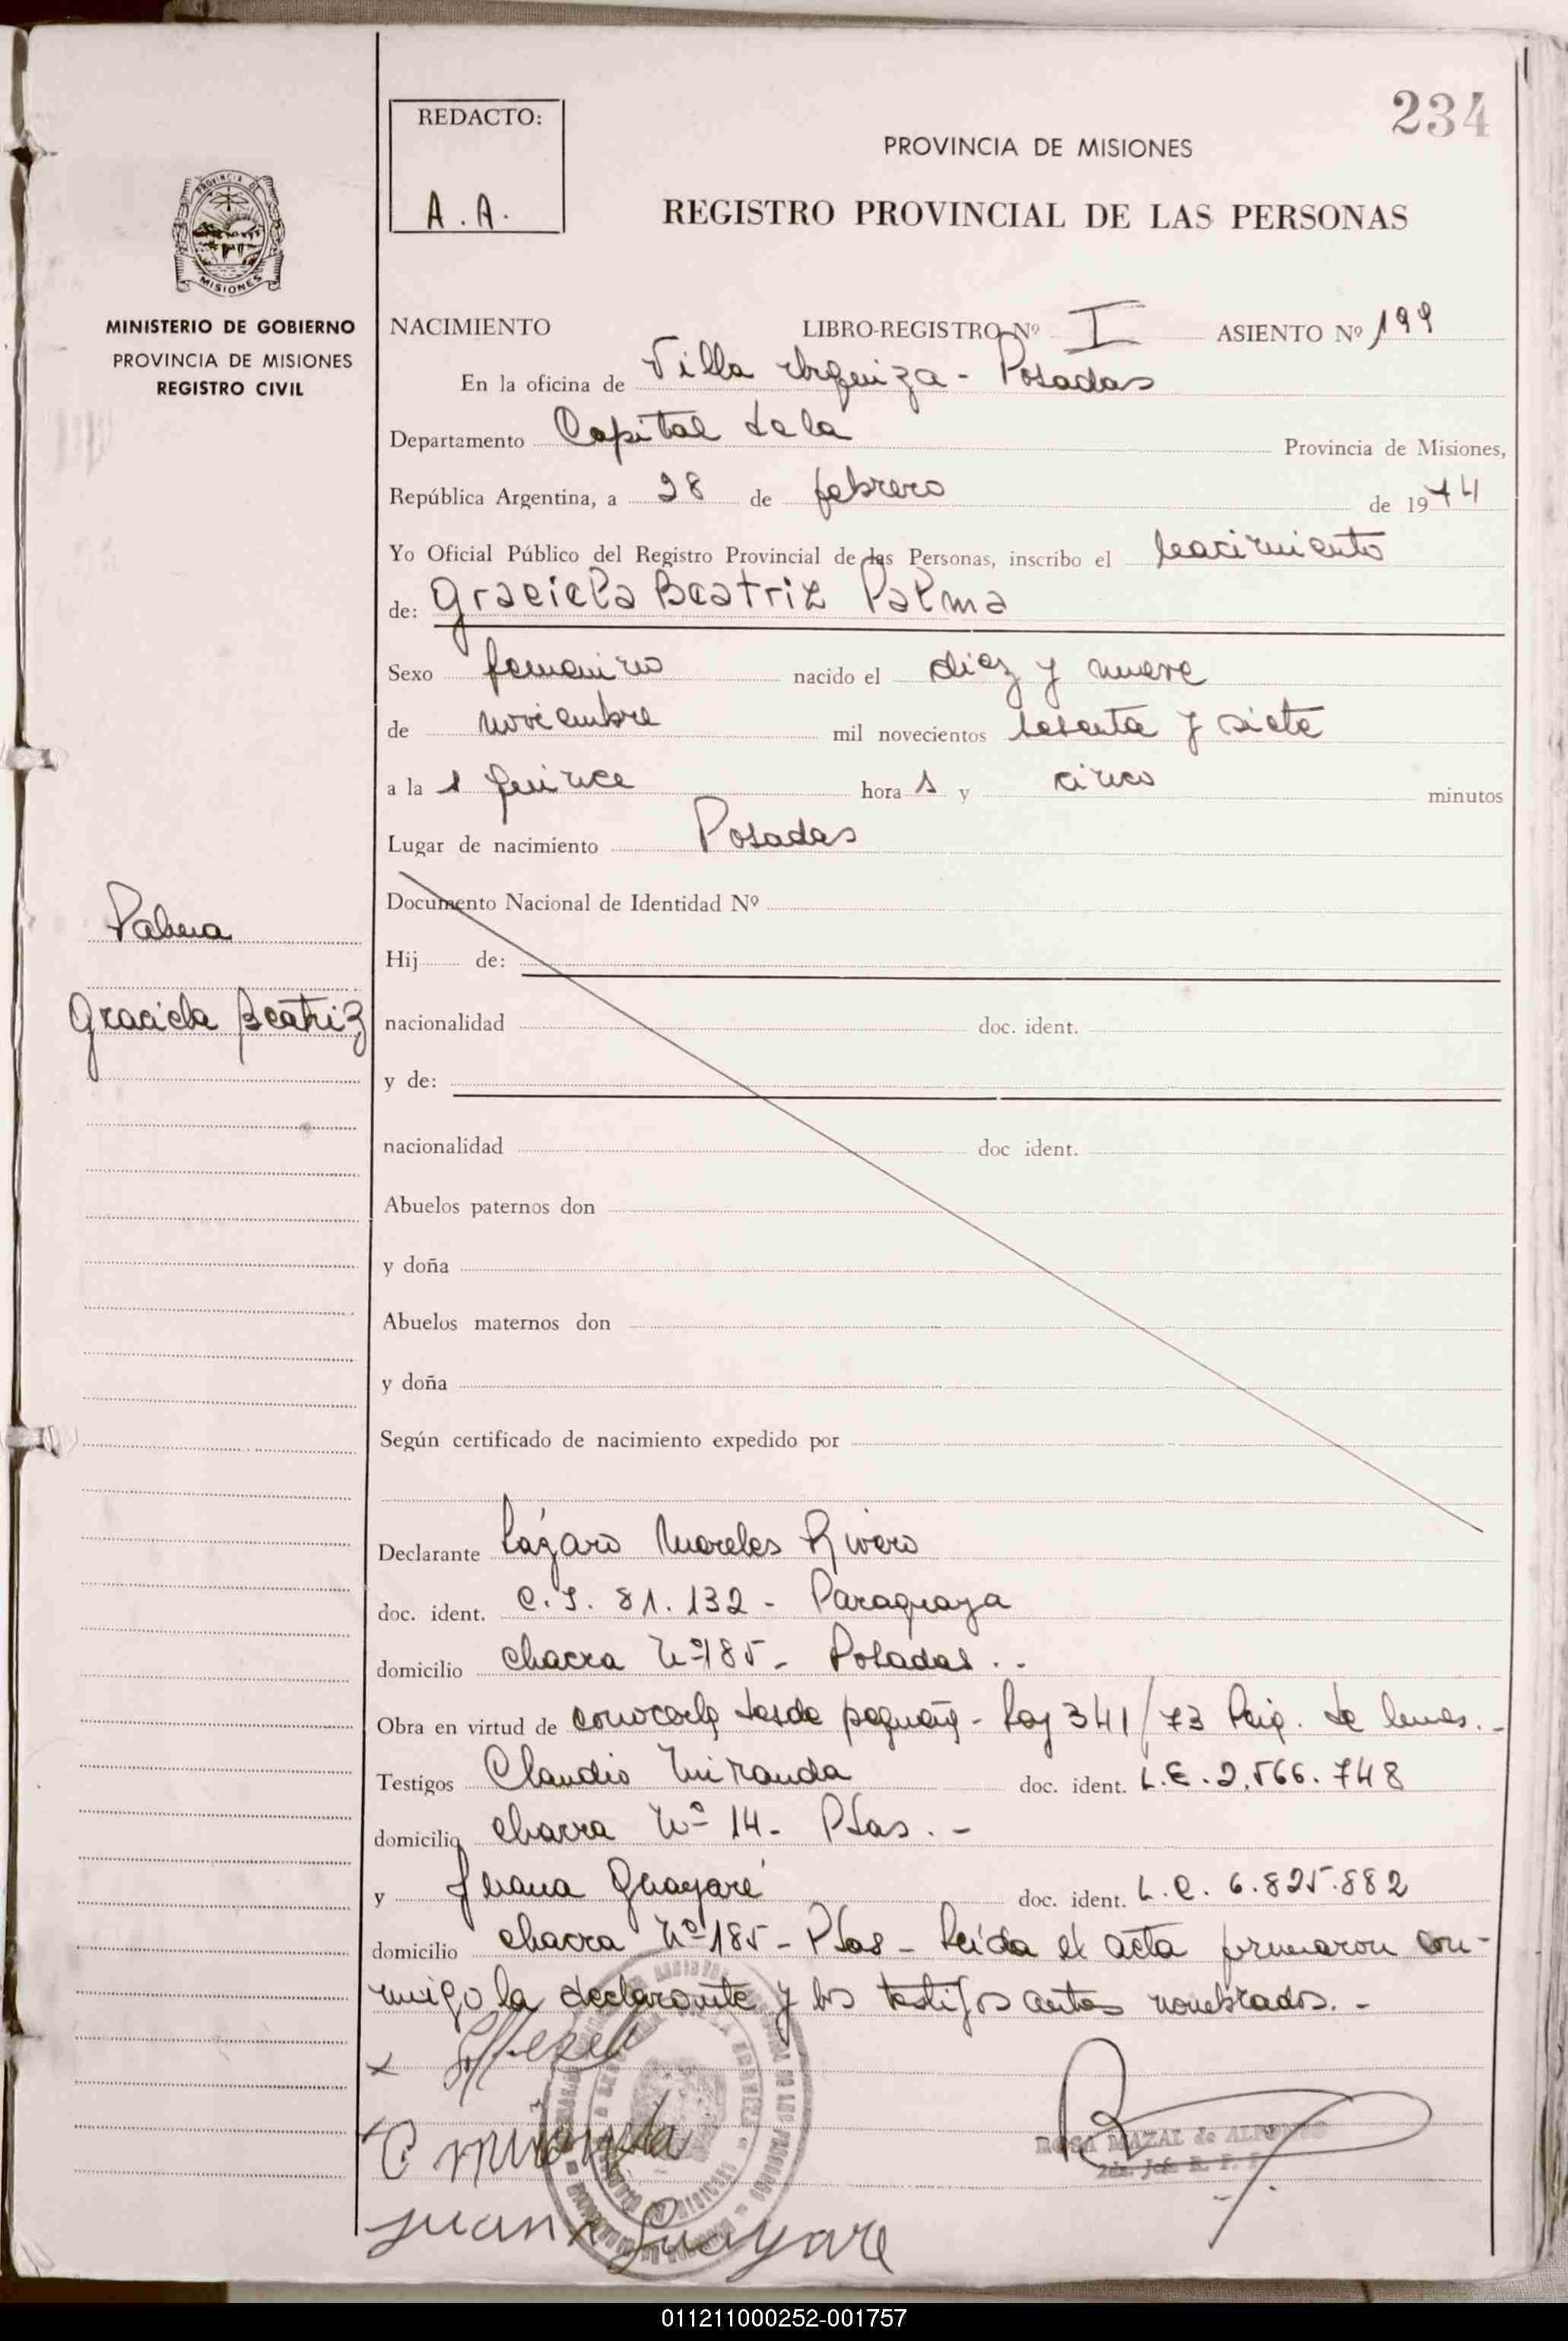 234
REDACTO:
A.A.
PROVINCIA DE MISIONES
REGISTRO PROVINCIAL DE LAS PERSONAS
PROVINCIA DE
MISIONES
MINISTERIO DE GOBIERNO
PROVINCIA DE MISIONES
REGISTRO CIVIL
NACIMIENTO LIBRO-REGISTRO Nº I ASIENTO Nº 199
En la oficina de Villa Urquiza - Posadas
Departamento Capital de la Provincia de Misiones,
República Argentina, a 28 de febrero de 1974
Yo Oficial Público del Registro Provincial de las Personas, inscribo el nacimiento
de: Graciela Beatriz Palma
Sexo femenino nacido el diez y nueve
de noviembre mil novecientos sesenta y siete
a la s quince hora s y cinco minutos
Lugar de nacimiento Posadas
Documento Nacional de Identidad Nº
Palma
Hij de:
Graciela Beatriz
nacionalidad doc. ident.
y de:
nacionalidad doc ident.
Abuelos paternos don
y doña
Abuelos maternos don
y doña
Según certificado de nacimiento expedido por
Declarante Lázaro Moreles Rivero
doc. ident. C.I. 81.132 - Paraguaya
domicilio chacra Nº 185 - Posadas . -
Obra en virtud de conocerla desde pequeña - Ley 341/73
Testigos Claudio Miranda doc. ident. L.E. 2.566.748
domicilio chacra Nº 14 - Pdas . -
y Juana Guayaré doc. ident. L.C. 6.825.882
domicilio chacra Nº 185 - Pdas - Leída el acta firmaron con-
migo la declarante y los testigos antes nombrados. -
x
C Miranda
ROSA MAZAL de ALFONSO
Juana Guayare
011211000252-001757